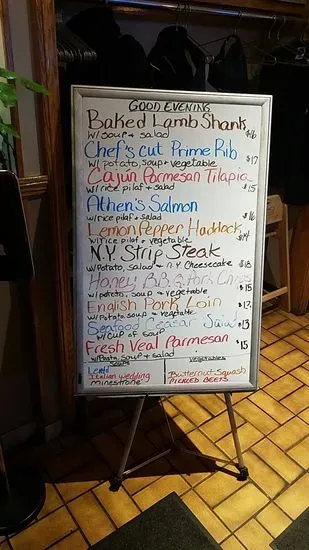 GOOD EVENING
Baked Lamb Shank $16
w/ soup + salad
Chef's cut Prime Rib $17
w/ potato soup + vegetable
Cajun Parmesan Tilapia $15
w/ rice pilaf + salad
Athen's Salmon $16
w/ rice pilaf + salad
Lemon Pepper Haddock $14
w/ rice pilaf + vegetable
N.Y. Strip Steak $18
w/ Potato, salad + N.Y. Cheesecake
Honey B.B.Q Pork Chops $15
w/ potato, soup + vegetable
English Pork Loin $12
w/ Potato soup + vegetable
Seafood Ceasar Salad $13
w/ cup of Soup
Fresh Veal Parmesan $15
w/ Pasta soup + salad
Soups
Vegetables
Lentil
Italian wedding
minestrone
Butternut Squash
PICKLED BEETS